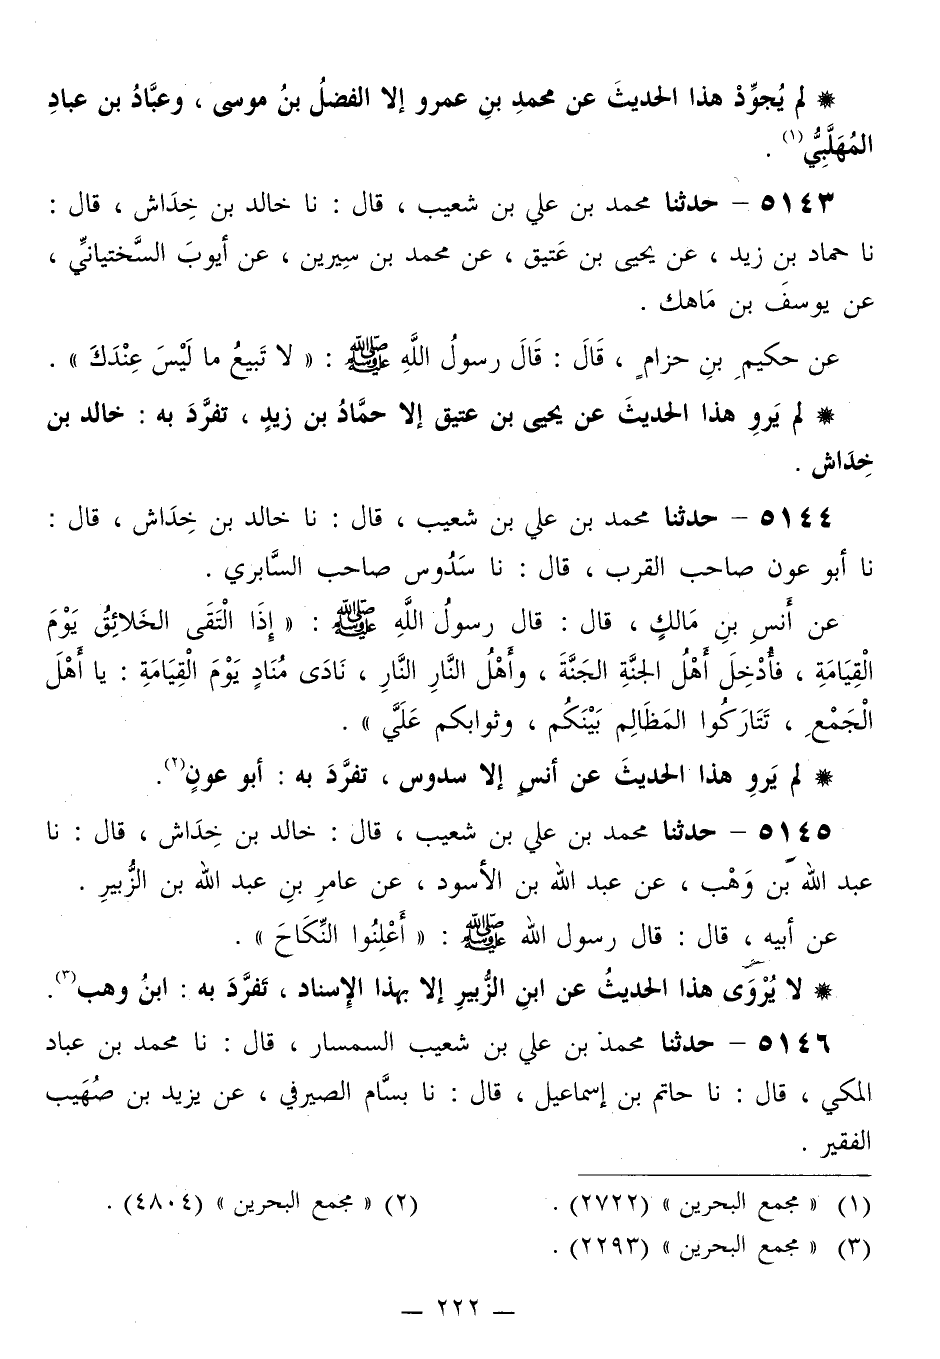 * لم يُجوِّدْ هذا الحديثَ عن محمدِ بنِ عمرو إلا الفضلُ بنُ موسى ، وعبَّادُ بن عبادِ
المُهَلَّبِيُّ(١) .
٥١٤٣ - حدثنا محمد بن علي بن شعيب ، قال : نا خالد بن خِدَاش ، قال :
نا حماد بن زيد ، عن يحيى بن عَتيق ، عن محمد بن سِيرين ، عن أيوبَ السَّختيانيِّ ،
عن يوسفَ بن مَاهك .
عن حكيمِ بنِ حزامٍ ، قَالَ : قَالَ رسولُ اللَّهِ ﷺ : « لا تَبيعُ ما لَيْسَ عِنْدَكَ » .
* لم يَروِ هذا الحديثَ عن يحيى بن عتيق إلا حمَّادُ بن زيدٍ ، تفرَّدَ به : خالد بن
خِدَاش .
٥١٤٤ - حدثنا محمد بن علي بن شعيب ، قال : نا خالد بن خِدَاش ، قال :
نا أبو عون صاحب القرب ، قال : نا سَدُوس صاحب السَّابري .
عن أَنسِ بنِ مَالكٍ ، قال : قال رسولُ اللَّهِ ﷺ : « إِذَا الْتَقَى الخَلائِقُ يَوْمَ
الْقِيَامَةِ ، فأُدْخِلَ أَهْلُ الجنَّةِ الجَنَّةَ ، وأَهْلُ النَّارِ النَّارِ ، نَادَى مُنَادٍ يَوْمَ الْقِيَامَةِ : يا أَهْلَ
الْجَمْعِ ، تَتَارَكُوا المَظَالِم بَيْنَكُم ، وثوابكم عَلَيَّ » .
* لم يَروِ هذا الحديثَ عن أنسٍ إلا سدوس ، تفرَّدَ به : أبو عونٍ(٢).
٥١٤٥ - حدثنا محمد بن علي بن شعيب ، قال : خالد بن خِدَاش ، قال : نا
عبد الله بن وَهْب ، عن عبد الله بن الأسود ، عن عامرِ بنِ عبد الله بن الزُّبيرِ .
عن أبيه ، قال : قال رسول الله ﷺ : « أَعْلِنُوا النِّكَاحَ » .
* لا يُرْوَى هذا الحديثُ عن ابنِ الزُّبيرِ إلا بهذا الإسناد ، تَفرَّدَ به : ابنُ وهب(٣).
٥١٤٦ - حدثنا محمد بن علي بن شعيب السمسار ، قال : نا محمد بن عباد
المكي ، قال : نا حاتم بن إسماعيل ، قال : نا بسَّام الصيرفي ، عن يزيد بن صُهَيب
الفقير .
(١) « مجمع البحرين » (٢٧٢٢) . (٢) « مجمع البحرين » (٤٨٠٤) .
(٣) « مجمع البحرين » (٢٢٩٣) .
— ٢٢٢ —